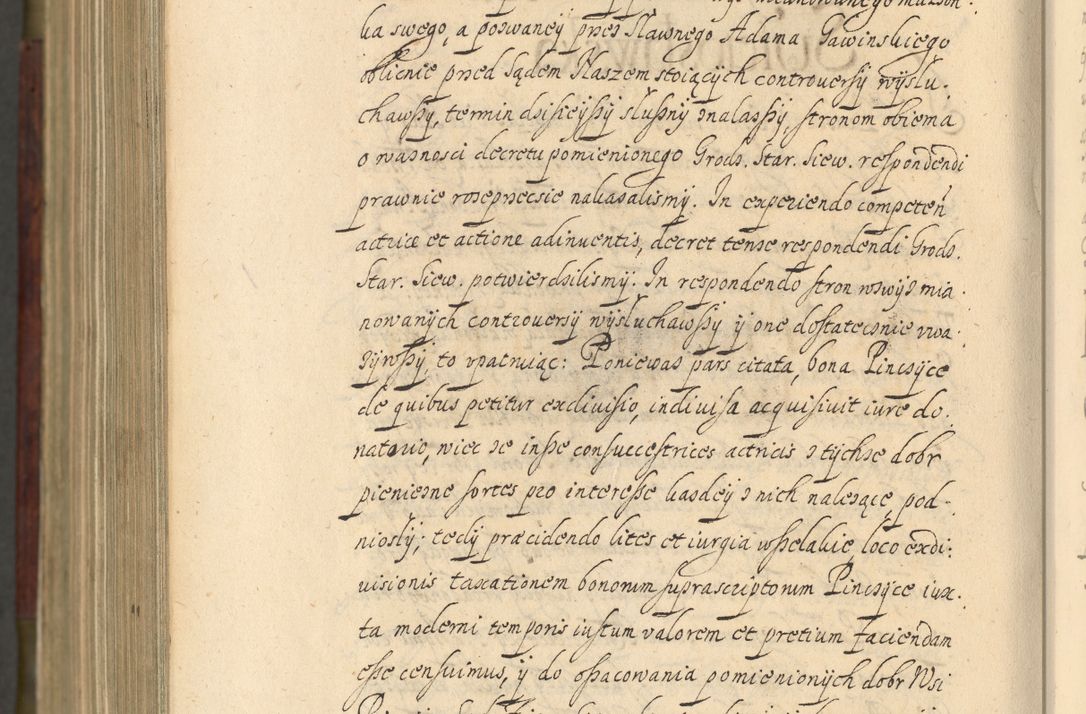 ka swego, a pozwaney przez sławnego Adama Gawinskiego
oblicznie przed Sądem Naszem stoiących controuersy wysłu-
chawszy, termin dzisieyszy słuszny znalazszy, stronom obiema
o waznosci decretu pomienionego Grodz. Star. Siew. respondendi
prawnie roseprzecsie nakazalismy. In experiendo competen
actrice et actione adinuentis, decret tenze respondendi Grodz.
Star. Siew. potwierdzilismy. In respondendo stron wzwyz mia-
nowanych controuersy wysłuchawszy y one dostatecznie vwa-
zywszy, to vpatruiąc: Poniewaz pars citata, bona Pinczyce
de quibus petitur exdiuisio, indiuisa acquisiuit iure do-
natorio, wiec ze insze consuccestrices actricis z tychze dobr
pieniezne sortes pro interesse kazdey z nich nalezące, pod-
niosły; tedy præcidendo lites et iurgia wszelakie, loco exdi-
uisionis taxationem bonorum suprascriptorum Pinczyce iux-
ta moderni temporis iustum valorem et pretium faciendam
esse censuimus, y do oszacowania pomienionych dobr Wsi